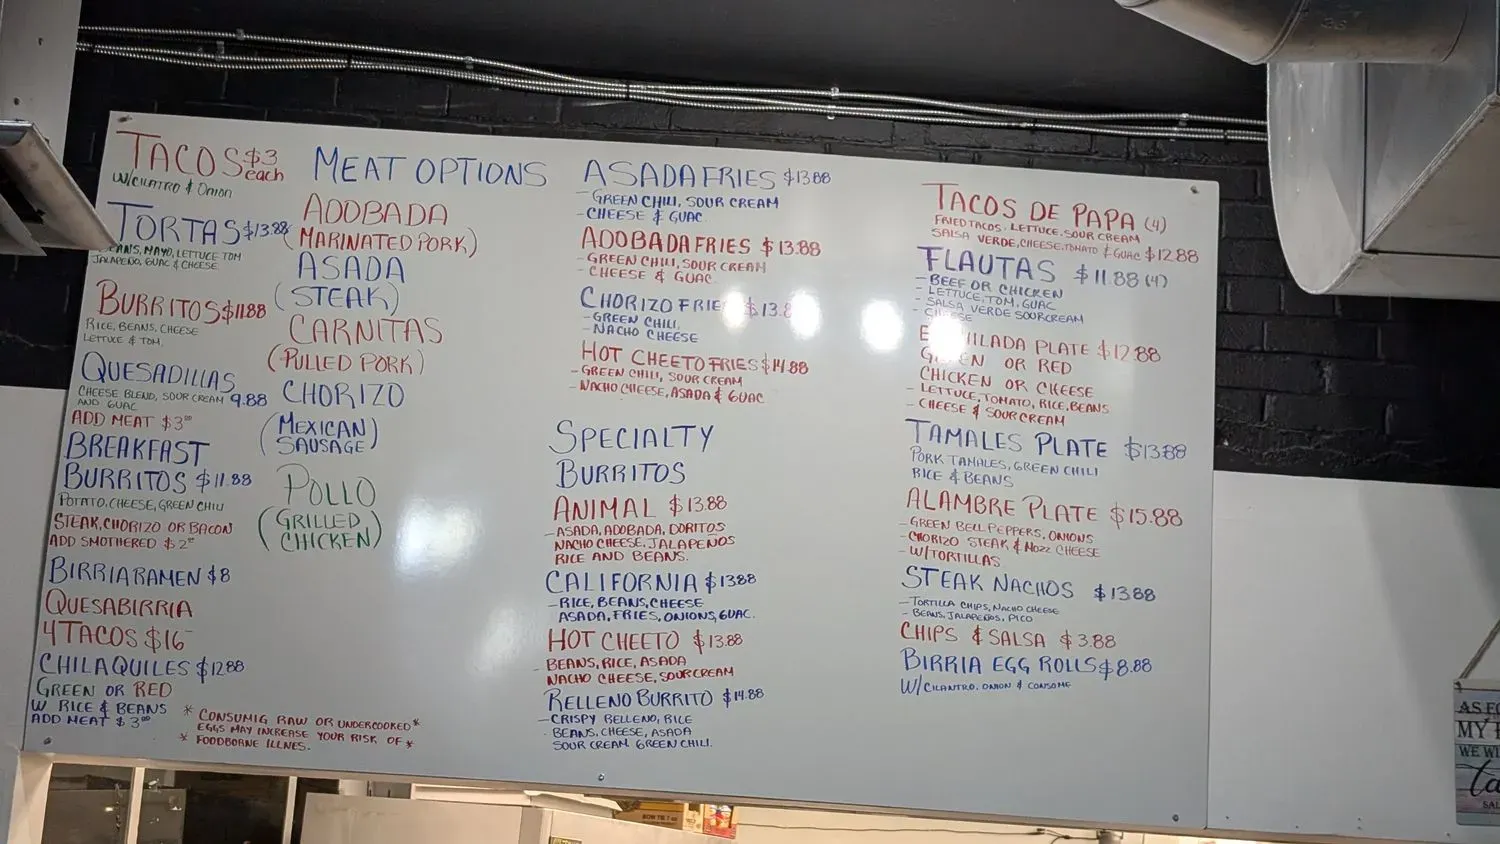 TACOS $3 each
W/CILATRO & ONION
TORTAS $13.88
BEANS, MAYO, LETTUCE TOM
JALAPEÑO, GUAC & CHEESE
BURRITOS $11.88
RICE, BEANS, CHEESE
LETTUCE & TOM.
QUESADILLAS
CHEESE BLEND, SOUR CREAM 9.88
AND GUAC
ADD MEAT $3⁰⁰
BREAKFAST
BURRITOS $11.88
POTATO, CHEESE, GREEN CHILI
STEAK, CHORIZO OR BACON
ADD SMOTHERED $2⁰⁰
BIRRIA RAMEN $8
QUESABIRRIA
4 TACOS $16
CHILAQUILES $12.88
GREEN OR RED
W RICE & BEANS
ADD MEAT $3⁰⁰
MEAT OPTIONS
ADOBADA
(MARINATED PORK)
ASADA
(STEAK)
CARNITAS
(PULLED PORK)
CHORIZO
(MEXICAN
SAUSAGE)
POLLO
(GRILLED
CHICKEN)
* CONSUMIG RAW OR UNDERCOOKED *
EGGS MAY INCREASE YOUR RISK OF *
* FOODBORNE ILLNES.
ASADA FRIES $13.88
- GREEN CHILI, SOUR CREAM
- CHEESE & GUAC
ADOBADA FRIES $13.88
- GREEN CHILI, SOUR CREAM
- CHEESE & GUAC
CHORIZO FRIE $13.8
- GREEN CHILI,
- NACHO CHEESE
HOT CHEETO FRIES $14.88
- GREEN CHILI, SOUR CREAM
- NACHO CHEESE, ASADA & GUAC
SPECIALTY
BURRITOS
ANIMAL $13.88
- ASADA, ADOBADA, DORITOS
NACHO CHEESE, JALAPEÑOS
RICE AND BEANS.
CALIFORNIA $13.88
- RICE, BEANS, CHEESE
ASADA, FRIES, ONIONS, GUAC.
HOT CHEETO $13.88
BEANS, RICE, ASADA
NACHO CHEESE, SOUR CREAM
RELLENO BURRITO $14.88
- CRISPY RELLENO, RICE
- BEANS, CHEESE, ASADA
SOUR CREAM GREEN CHILI.
TACOS DE PAPA (4)
FRIED TACOS, LETTUCE, SOUR CREAM
SALSA VERDE, CHEESE, TOMATO & GUAC $12.88
FLAUTAS $11.88 (4)
- BEEF OR CHICKEN
- LETTUCE, TOM, GUAC
- SALSA VERDE SOURCREAM
- CHEESE
ENCHILADA PLATE $12.88
GREEN OR RED
CHICKEN OR CHEESE
- LETTUCE, TOMATO, RICE, BEANS
- CHEESE & SOUR CREAM
TAMALES PLATE $13.88
PORK TAMALES, GREEN CHILI
RICE & BEANS
ALAMBRE PLATE $15.88
- GREEN BELL PEPPERS, ONIONS
- CHORIZO STEAK & MOZZ CHEESE
- W/TORTILLAS
STEAK NACHOS $13.88
- TORTILLA CHIPS, NACHO CHEESE
- BEANS, JALAPEÑOS, PICO
CHIPS & SALSA $3.88
BIRRIA EGG ROLLS $8.88
W/CILANTRO, ONION & CONSOME
AS
MY
WE WI